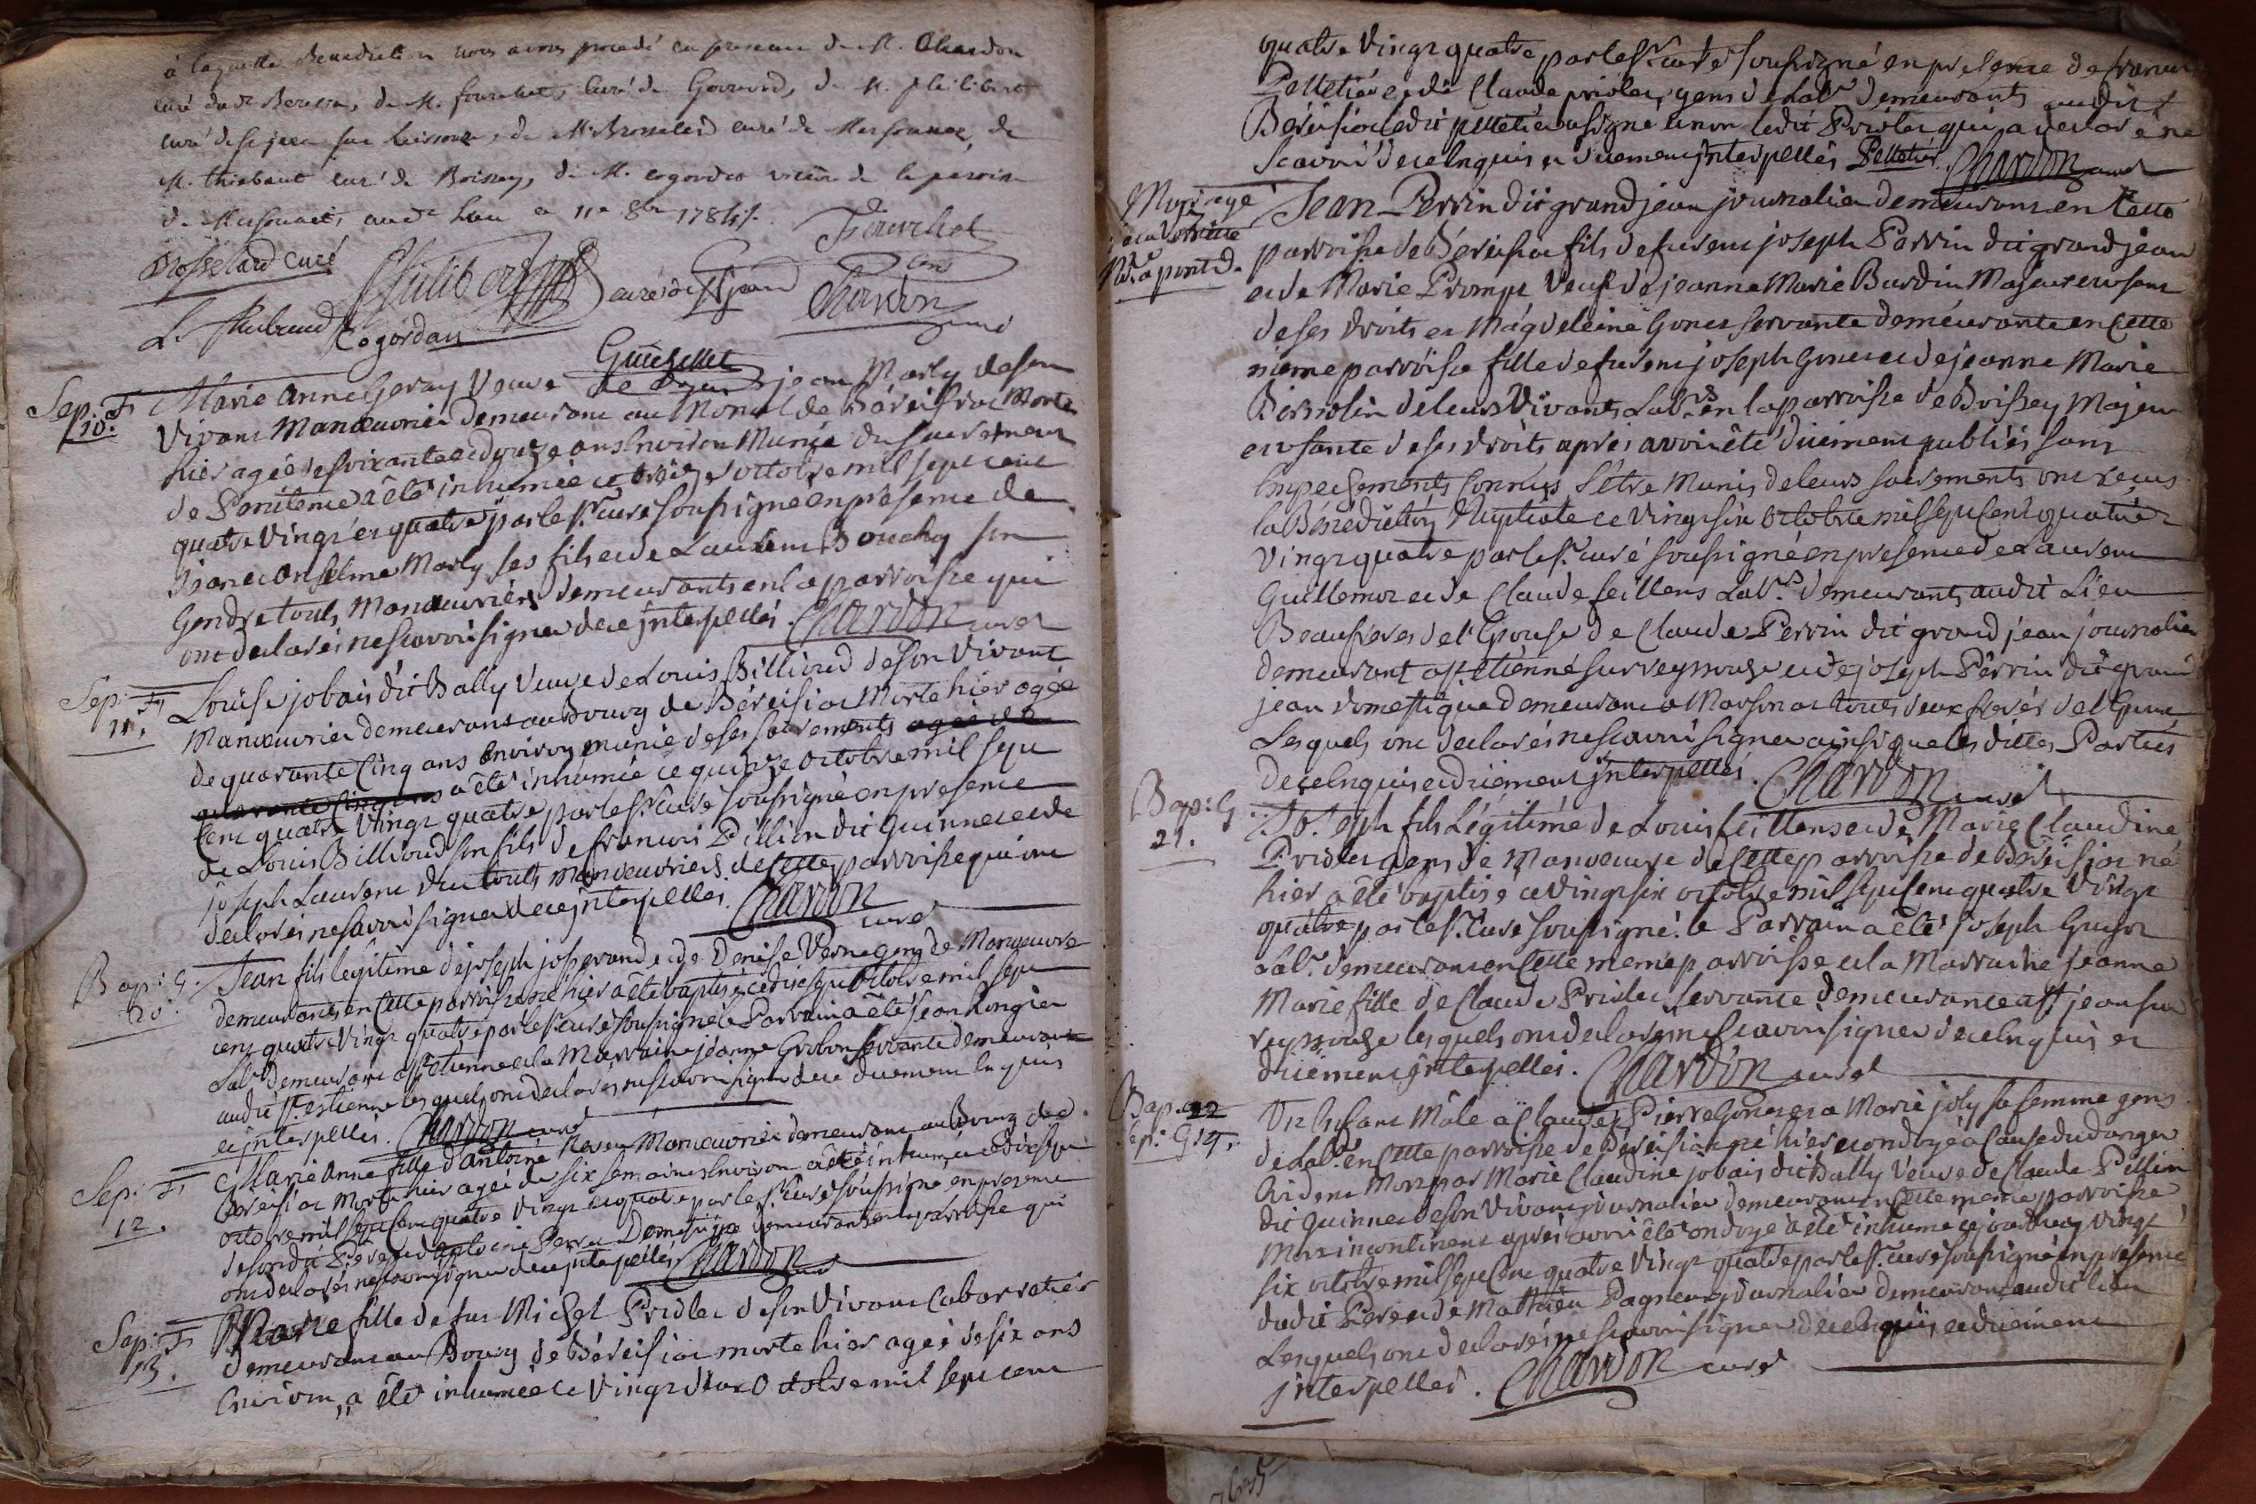 à laquelle Benediction nous avons procedé en presence de M. Chardon
curé dud Bereisia, de M. fourchet, curé de Gorrevod, de M. philibert
curé de st jean sur Reissouze, de M. Brosselard curé de Marsonnas, de
M. thiebaut curé de Boissey, de M. cogordan vicaire de la paroisse
de Marsonnas, aud. lieu ce 11e 8bre 1784.
Brosselard curé Philibert curé de St jean Fourchet
Chardon curé
Cogordan
Sep. F. 10. Marie Anne Geray Veuve de jean Marly de son
Vivant Manoeuvrier demeurant au de Béreisiac Morte
hier agée de soixante et douze ans Environ Munie du sacrement
de Penitence a été inhumée ce octobre mil sept cent
quatre Vingt et quatre par le Sr. curé soussigné en présence de
et anselme Marly ses fils et de Laurent Bouchy son
Gendre touts Manoeuvriers demeurants en la parroisse qui
ont declarés ne scavoir signer de ce interpellés. Chardon curé
Sep. F. 11. Louise jobais dit Bally Veuve de Louis Billioud de son Vivant
Manoeuvrier demeurant au Bourg de Béreisiac Morte hier agée
de quarante Cinq ans Environ munie de ses sacrements agée de
quarante Cinq ans a été inhumée ce quinze octobre mil sept
Cent quatre Vingt quatre par le Sr. Curé soussigné en presence
de Louis Billioud son fils de francois Pillion dit Guinnet et de
joseph Laurent touts Manoeuvriers de cette parroisse qui ont
declarés ne scavoir signer de ce interpellés. Chardon curé
Bap: G. 20. Jean fils legitime de joseph josserand et de Denise Verne gens de Manoeuvre
demeurants en Cette parroisse né hier a été baptisé ce dix sept octobre mil sept
cent quatre Vingt quatre par le Sr. Curé soussigné le Parrain a été jean Rongier
Labr. demeurant a St. Etienne et la Marraine jeanne Grobon servante demeurante
audit St. estienne lesquels ont declarés ne scavoir signer de ce duement Enquis
et interpellés. Chardon curé
Sep. F. 12. Marie Anne fille d'Antoine Manoeuvrier demeurant au Bourg de
Béreisiac Morte hier agée de six semaines Environ a été inhumée ce dix sept
octobre mil sept Cent quatre Vingt et quatre par le Sr. Curé soussigné en presence
de sondit Pere et d'antoine Perret Domestique demeurants en la parroisse qui
ont declarés ne scavoir signer de ce interpellés. Chardon curé
Sep. F. 13. Marie fille de fut Michel Pridler de son Vivant Cabarratier
demeurant au Bourg de Béreisiac morte hier agée de six ans
Environ, a été inhumée ce Vingt deux Octobre mil sept cent
quatre Vingt quatre par le Sr. Curé soussigné en presence de francois
Pelletier et de Claude pridler, gens de Labr. demeurants audit
Béreisiac ledit pelletier a signé et non ledit Pridler qui a declaré ne
scavoir de ce Enquis et duement interpellés Pelletier. Chardon curé
Mariage Jean Perrin dit grand jean journalier demeurant en Cette
parroisse de Béreisiac fils de furent joseph Perrin dit grand jean
et de Marie Prompt Veuf de jeanne Marie Burdin Majeur et usant
de ses droits et Magdeleine Goness servante demeurante en Cette
même parroisse fille de furent joseph Gonesse et de jeanne Marie
Bernolin de leurs Vivants Labrs. en la parroisse de Boissey Majeure
et usante de ses droits apres avoir été duement publiés sans
Empechements Connus s'être Munis de leurs sacrements ont recus
la Bénédiction Nuptiale ce Vingt six octobre mil sept Cent quatre
Vingt quatre par le Sr. curé soussigné en presence de Laurent
Guillemot et de Claude feillens Labrs. demeurants audit Lieu
Beaufreres de l'Epouse de Claude Perrin dit grand jean journalier
demeurant a St. etienne sur reyssouze et de joseph Perrin dit grand
jean domestique demeurant a Marsonnas touts deux freres de l'Epoux
Lesquels ont declarés ne scavoir signer ainsi que les dittes Parties
de ce Enquis et duement interpellés. Chardon curé
Bap: G. 21. Joseph fils Légitime de Louis feillens et de Marie Claudine
Pridler gens de Manoeuvre de Cette parroisse de Béreisiac né
hier a été baptisé ce Vingt six octobre mil sept Cent quatre Vingt
quatre par le Sr. Curé soussigné. le Parrain a été joseph
Labr. demeurant en Cette meme parroisse et la Marraine jeanne
Marie fille de Claude Pridler servante demeurante a St. jean sur
reyssouze lesquels ont declarés ne scavoir signer de ce Enquis et
duement interpellés. Chardon curé
Bap. 22 Sep: G 14. Un Enfant Mâle a Claude Pierre Goness et a Marie joly sa femme gens
de Labr. en Cette parroisse de Béreisiac né hier et ondoyé a Cause du danger
Evident Mort par Marie Claudine jobais dit Bally Veuve de Claude Pillion
dit Guinnet de son Vivant journalier demeurant en Cette meme parroisse
Mort incontinent après avoir été ondoyé a été inhumé ce jourdhuy Vingt
six octobre mil sept Cent quatre Vingt quatre par le Sr. curé soussigné en presence
dudit Pere et de Mathieu Pagneux journalier demeurant audit lieu
Lesquels ont declarés ne scavoir signer de ce Enquis et duement
interpellés. Chardon curé